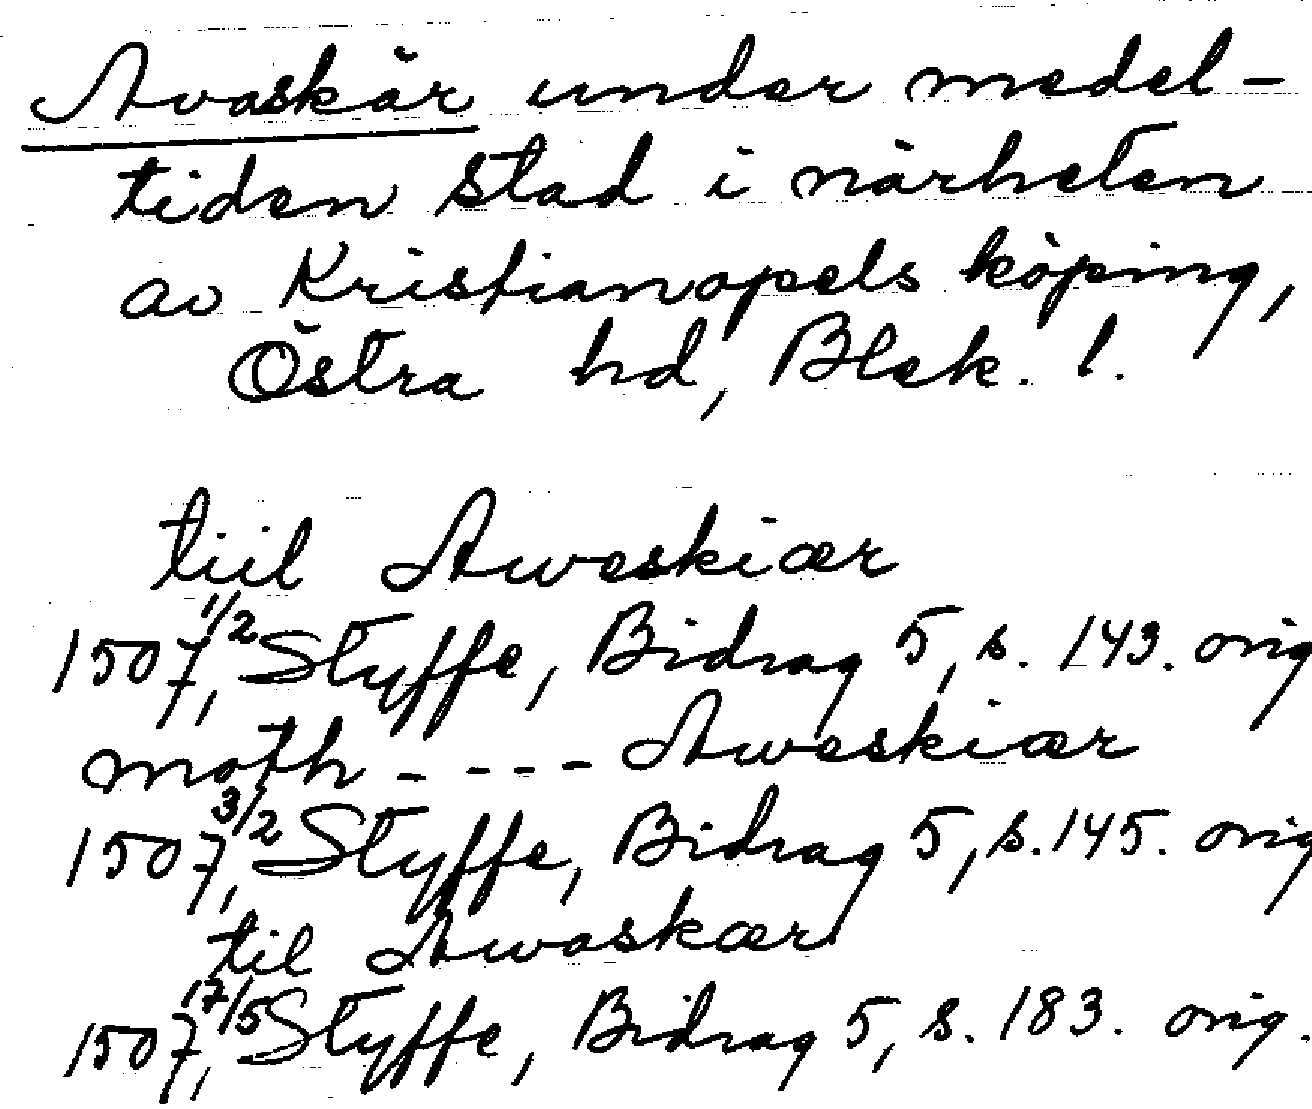 Avaskär under medel-
tiden stad i närheten
av Kristianopels köping,
Östra hd, Blek. l.
tiil Aweskiær
1507 1/2, Styffe, Bidrag 5, s. 143. orig
moth - - - - Aweskiær
1507 3/2, Styffe, Bidrag 5, s. 145. orig
til Awaskær
1507 17/5, Styffe, Bidrag 5, s. 183. orig.